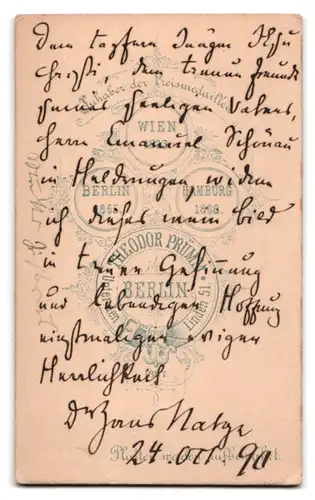 Dem tapfern Jünger Jesu
Christi, dem treuen Freunde
Inhaber der Preismedaillen
seines seeligen Vaters,
WIEN
Herrn Emanuel Schönau
in Heldrungen, widme
BERLIN
1865.
HAMBURG
1868.
ich dieses mein Bild
THEODOR PRÜMM
in treuer Gesinnung
BERLIN
Unter den Linden 51.
und lebendiger Hoffnung
einstmaliger ewiger
Herrlichkeit
Dr Hans Natge
24 Oct. 90